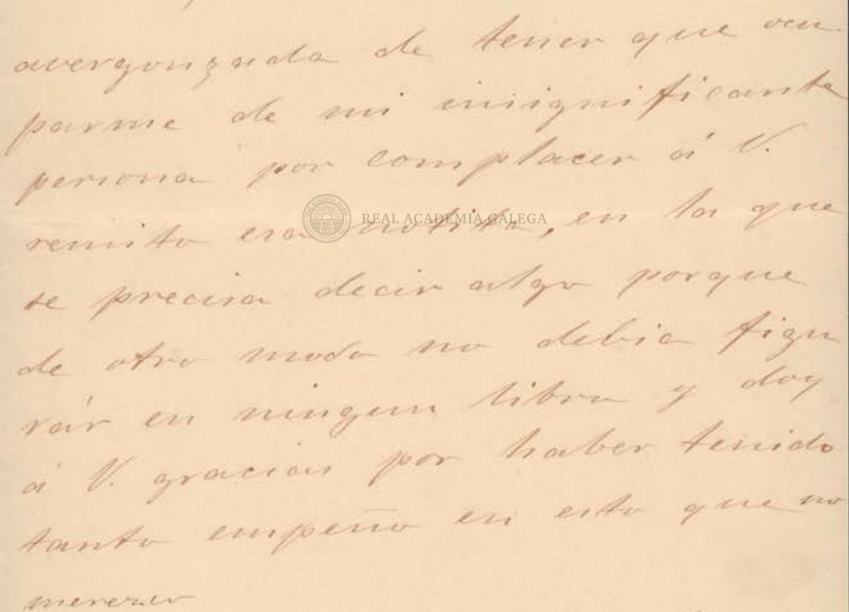 avergonzada de tener que ocu
parme de mi insignificante
persona por complacer á V.
remito esa notita, en la que
se precisa decir algo porque
de otro modo no debia figu
rár en ningun libro y doy
á V. gracias por haber tenido
tanto empeño en esto que no
merezco
REAL ACADEMIA GALEGA